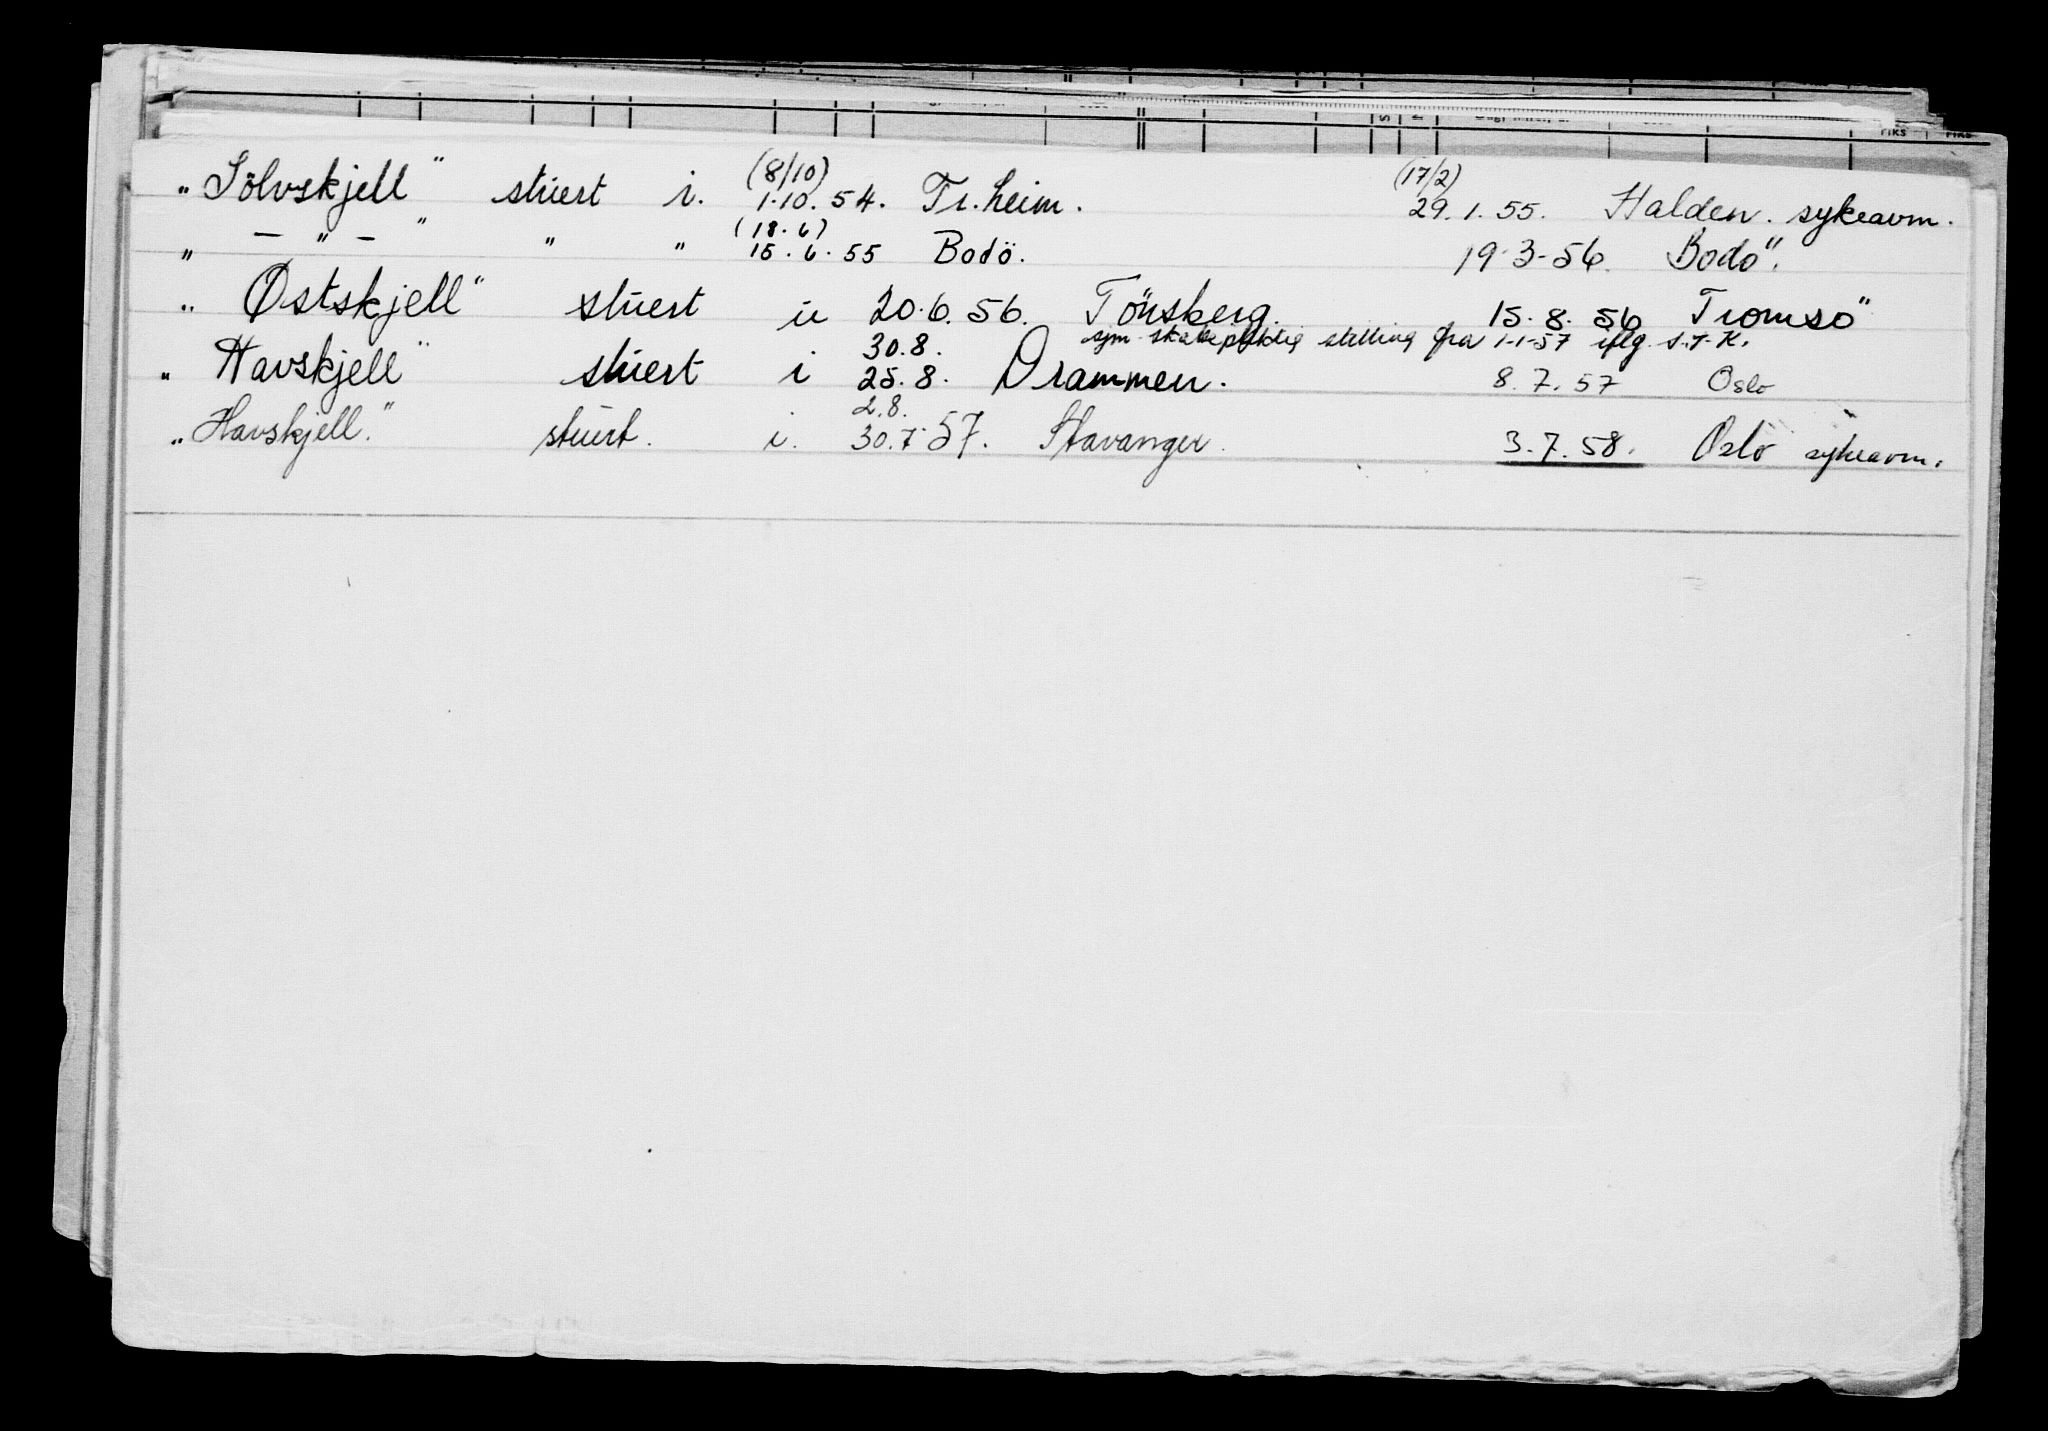 (8/10) (17/2)
„Sölvskjell" stúert i. 1.10.54. Tr.heim. 29.1.55. Halden. sykeavm.
(18.6)
„ — " — " " " 15.6.55 Bodö. 19-3-56. Bodö.
„Østskjell" stúert u 20.6.56. Tönsberg. 15.8.56 Tromsö
30.8. sjm. skattepliktig stilling fra 1-1-57 iflg. S.T.K.
„Havskjell" stúert i 25.8. Drammen. 8.7.57 Oslo
2.8.
„Havskjell." stúert. i. 30.7.57. Stavanger. 3.7.58. Oslo sykeavm.